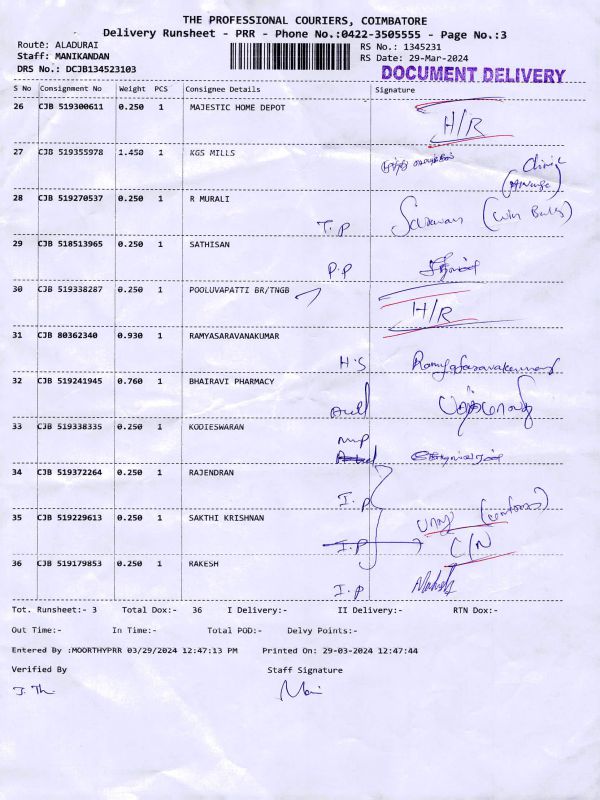 THE PROFESSIONAL COURIERS, COIMBATORE
Delivery Runsheet - PRR - Phone No.:0422-3505555 - Page No.:3
Route: ALADURAI
RS No.: 1345231
Staff: MANIKANDAN
RS Date: 29-Mar-2024
DRS No.: DCJB134523103
DOCUMENT DELIVERY
S No Consignment No Weight PCS Consignee Details Signature
26 CJB 519300611 0.250 1 MAJESTIC HOME DEPOT
H/R
27 CJB 519355978 1.450 1 KGS MILLS
Clinic
28 CJB 519270537 0.250 1 R MURALI
T.P Saravan
29 CJB 518513965 0.250 1 SATHISAN
P.P
30 CJB 519338287 0.250 1 POOLUVAPATTI BR/TNGB
H/R
31 CJB 80362340 0.930 1 RAMYASARAVANAKUMAR
H.S
32 CJB 519241945 0.760 1 BHAIRAVI PHARMACY
33 CJB 519338335 0.250 1 KODIESWARAN
34 CJB 519372264 0.250 1 RAJENDRAN
I.P
35 CJB 519229613 0.250 1 SAKTHI KRISHNAN
I.P C/N
36 CJB 519179853 0.250 1 RAKESH
I.P
Tot. Runsheet:- 3 Total Dox:- 36 I Delivery:- II Delivery:- RTN Dox:-
Out Time:- In Time:- Total POD:- Delvy Points:-
Entered By :MOORTHYPRR 03/29/2024 12:47:13 PM Printed On: 29-03-2024 12:47:44
Verified By Staff Signature